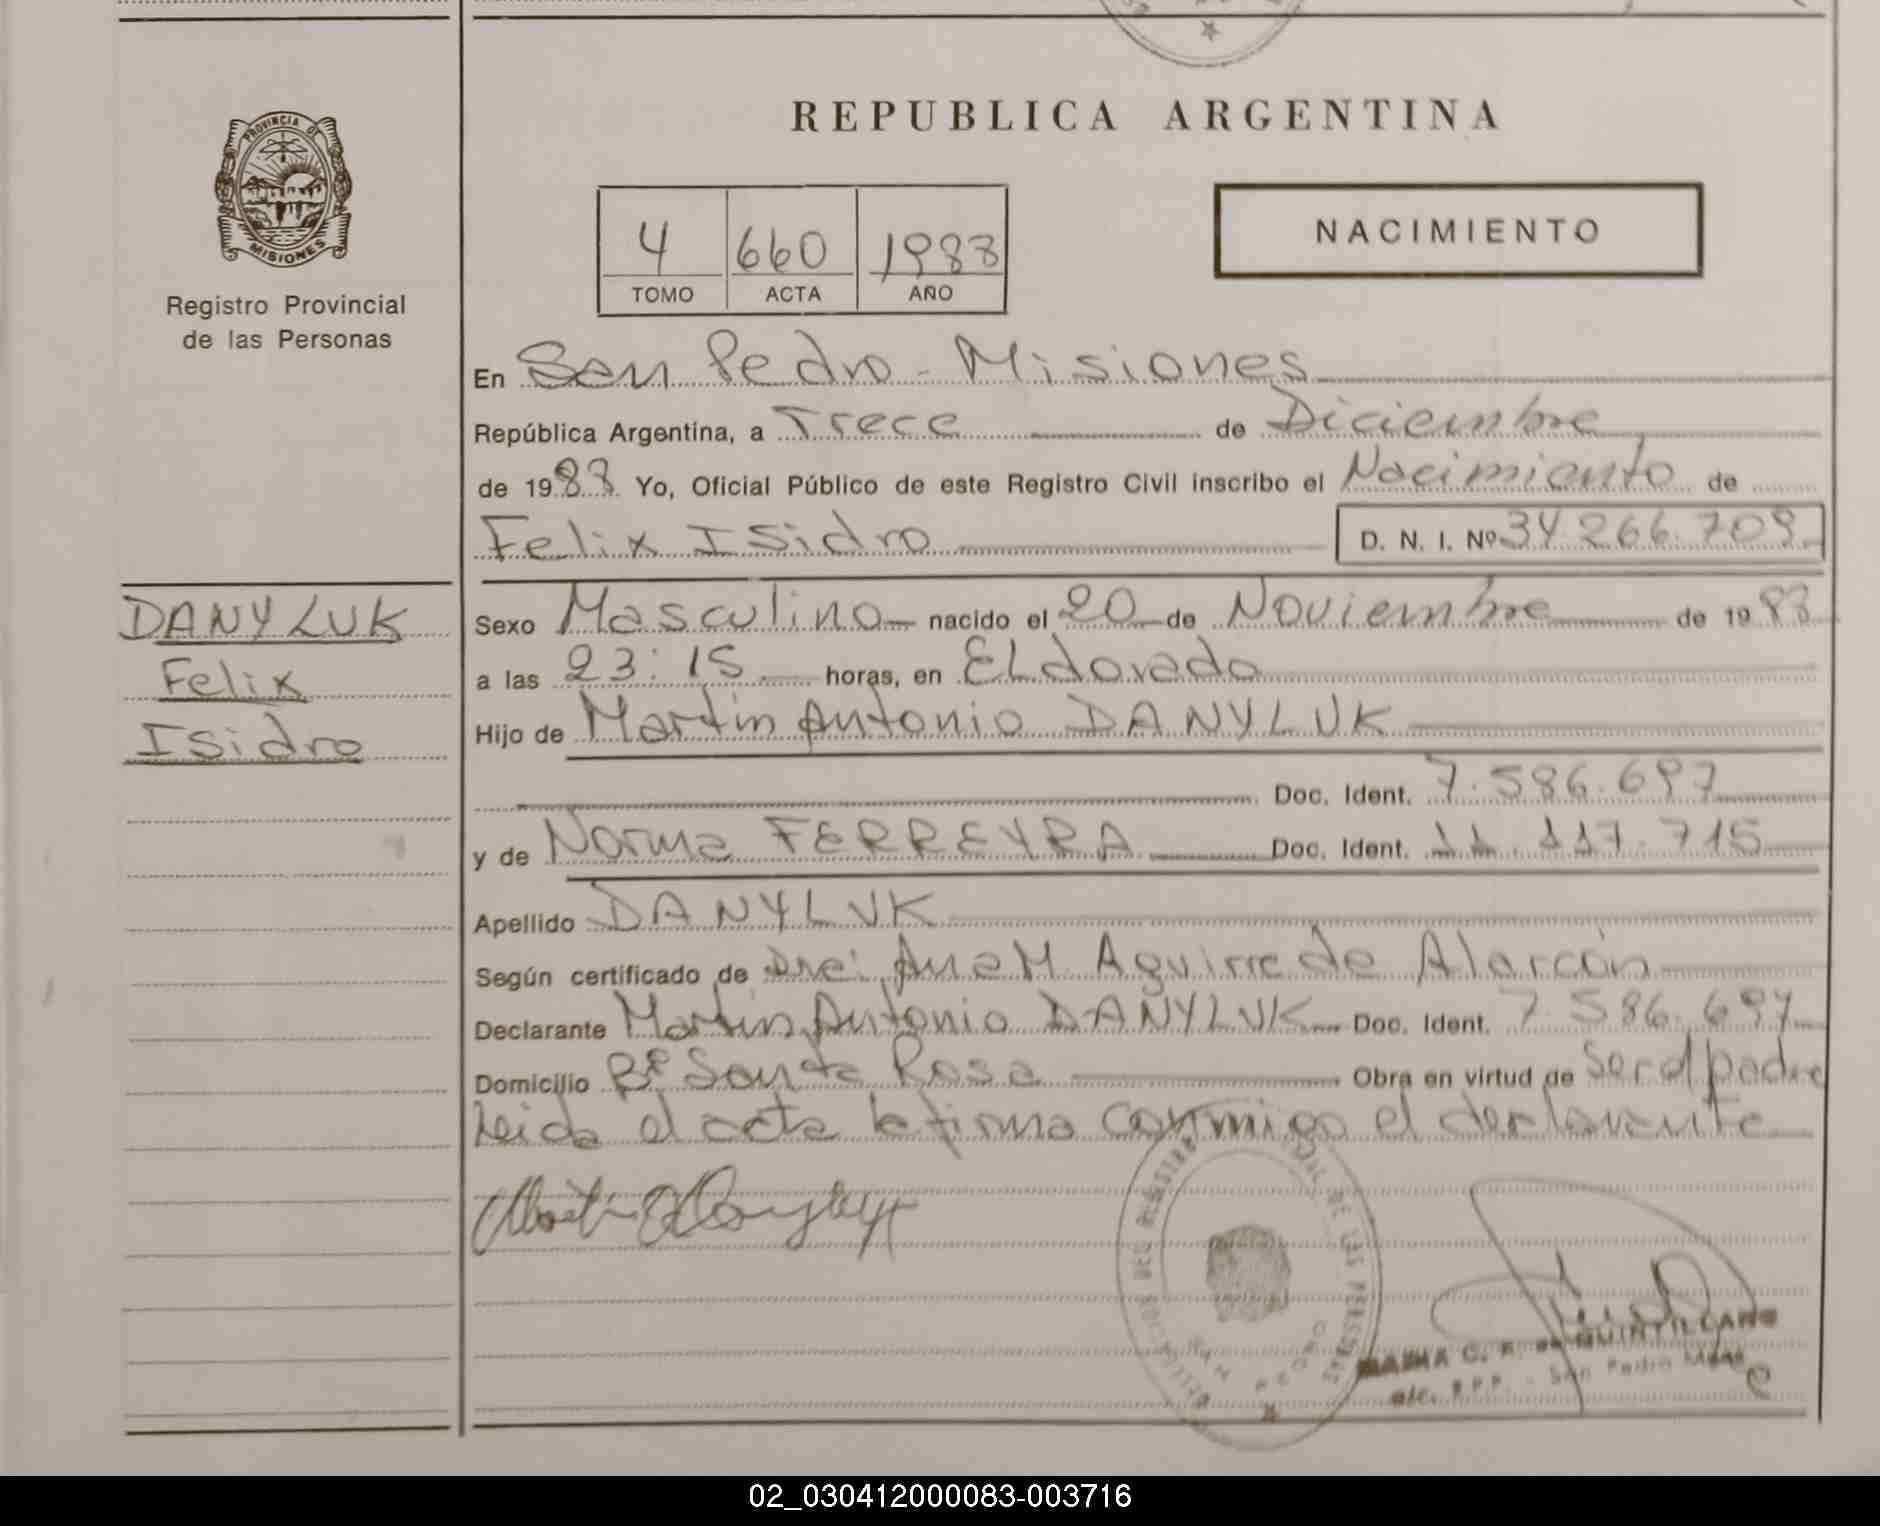 REPUBLICA ARGENTINA
PROVINCIA DE
MISIONES
Registro Provincial
de las Personas
4 660 1988
TOMO ACTA AÑO
NACIMIENTO
En San Pedro - Misiones
República Argentina, a Trece de Diciembre
de 1988 Yo, Oficial Público de este Registro Civil inscribo el Nacimiento de
Felix Isidro D. N. I. Nº 34 266.709
DANYLUK
Felix
Isidro
Sexo Masculino nacido el 20 de Noviembre de 1988
a las 23:15 horas, en ELdorado
Hijo de Martin Antonio DANYLUK
Doc. Ident. 7.586.697
y de Norma FERREYRA Doc. Ident. 11.117.715
Apellido DANYLUK
Según certificado de Dra: Ana M Aguirre de Alarcón
Declarante Martin Antonio DANYLUK Doc. Ident. 7.586.697
Domicilio Bº Santa Rosa Obra en virtud de Ser el padre
Leida el acta la firma conmigo el declarante
QUINTILLAN
R.P.P. - San Pedro
02_030412000083-003716